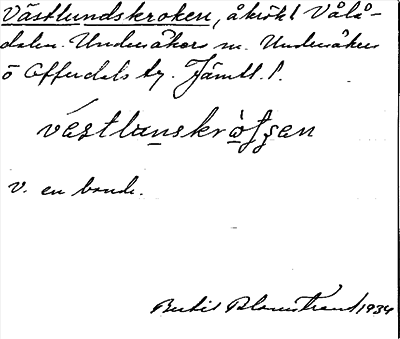 Västlundskroken, åkrökt Vålå-
dalen. Undersåkers sn. Undersåkers
o Offerdals tg. Jämtl. l.
västlunskròʃʃen
v. en bonde.
Bertil Blomstrand 1934